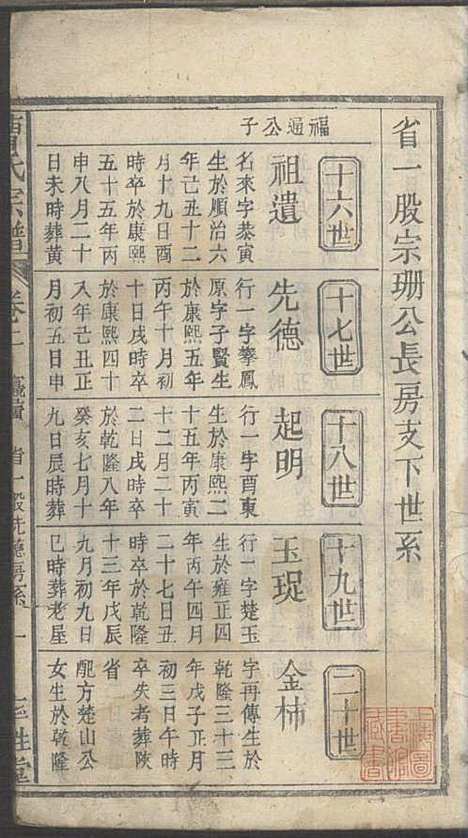 省一股宗珊公長房支下世系
福通公子
十六世
祖遺
名來字恭寅
生於順治六
年己丑十二
月十九日酉
時卒於康熙
五十五年丙
申八月二十
日未時葬黄
十七世
先德
行一字攀鳳
原字子賢生
於康熙五年
丙午十月初
十日戌時卒
於康熙四十
八年己丑正
月初五日申
十八世
起明
行一字酉東
生於康熙二
十五年丙寅
十二月二十
二日戌時卒
於乾隆八年
癸亥七月十
九日辰時葬
十九世
玉珽
行一字楚玉
生於雍正四
年丙午四月
二十七日丑
時卒於乾隆
十三年戊辰
九月初九日
巳時葬老屋
二十世
金柿
字再傳生於
乾隆三十三
年戊子正月
初三日午時
卒失考葬陝
省
配方楚山公
女生於乾隆
氏宗譜
卷二
省一股
房系
一